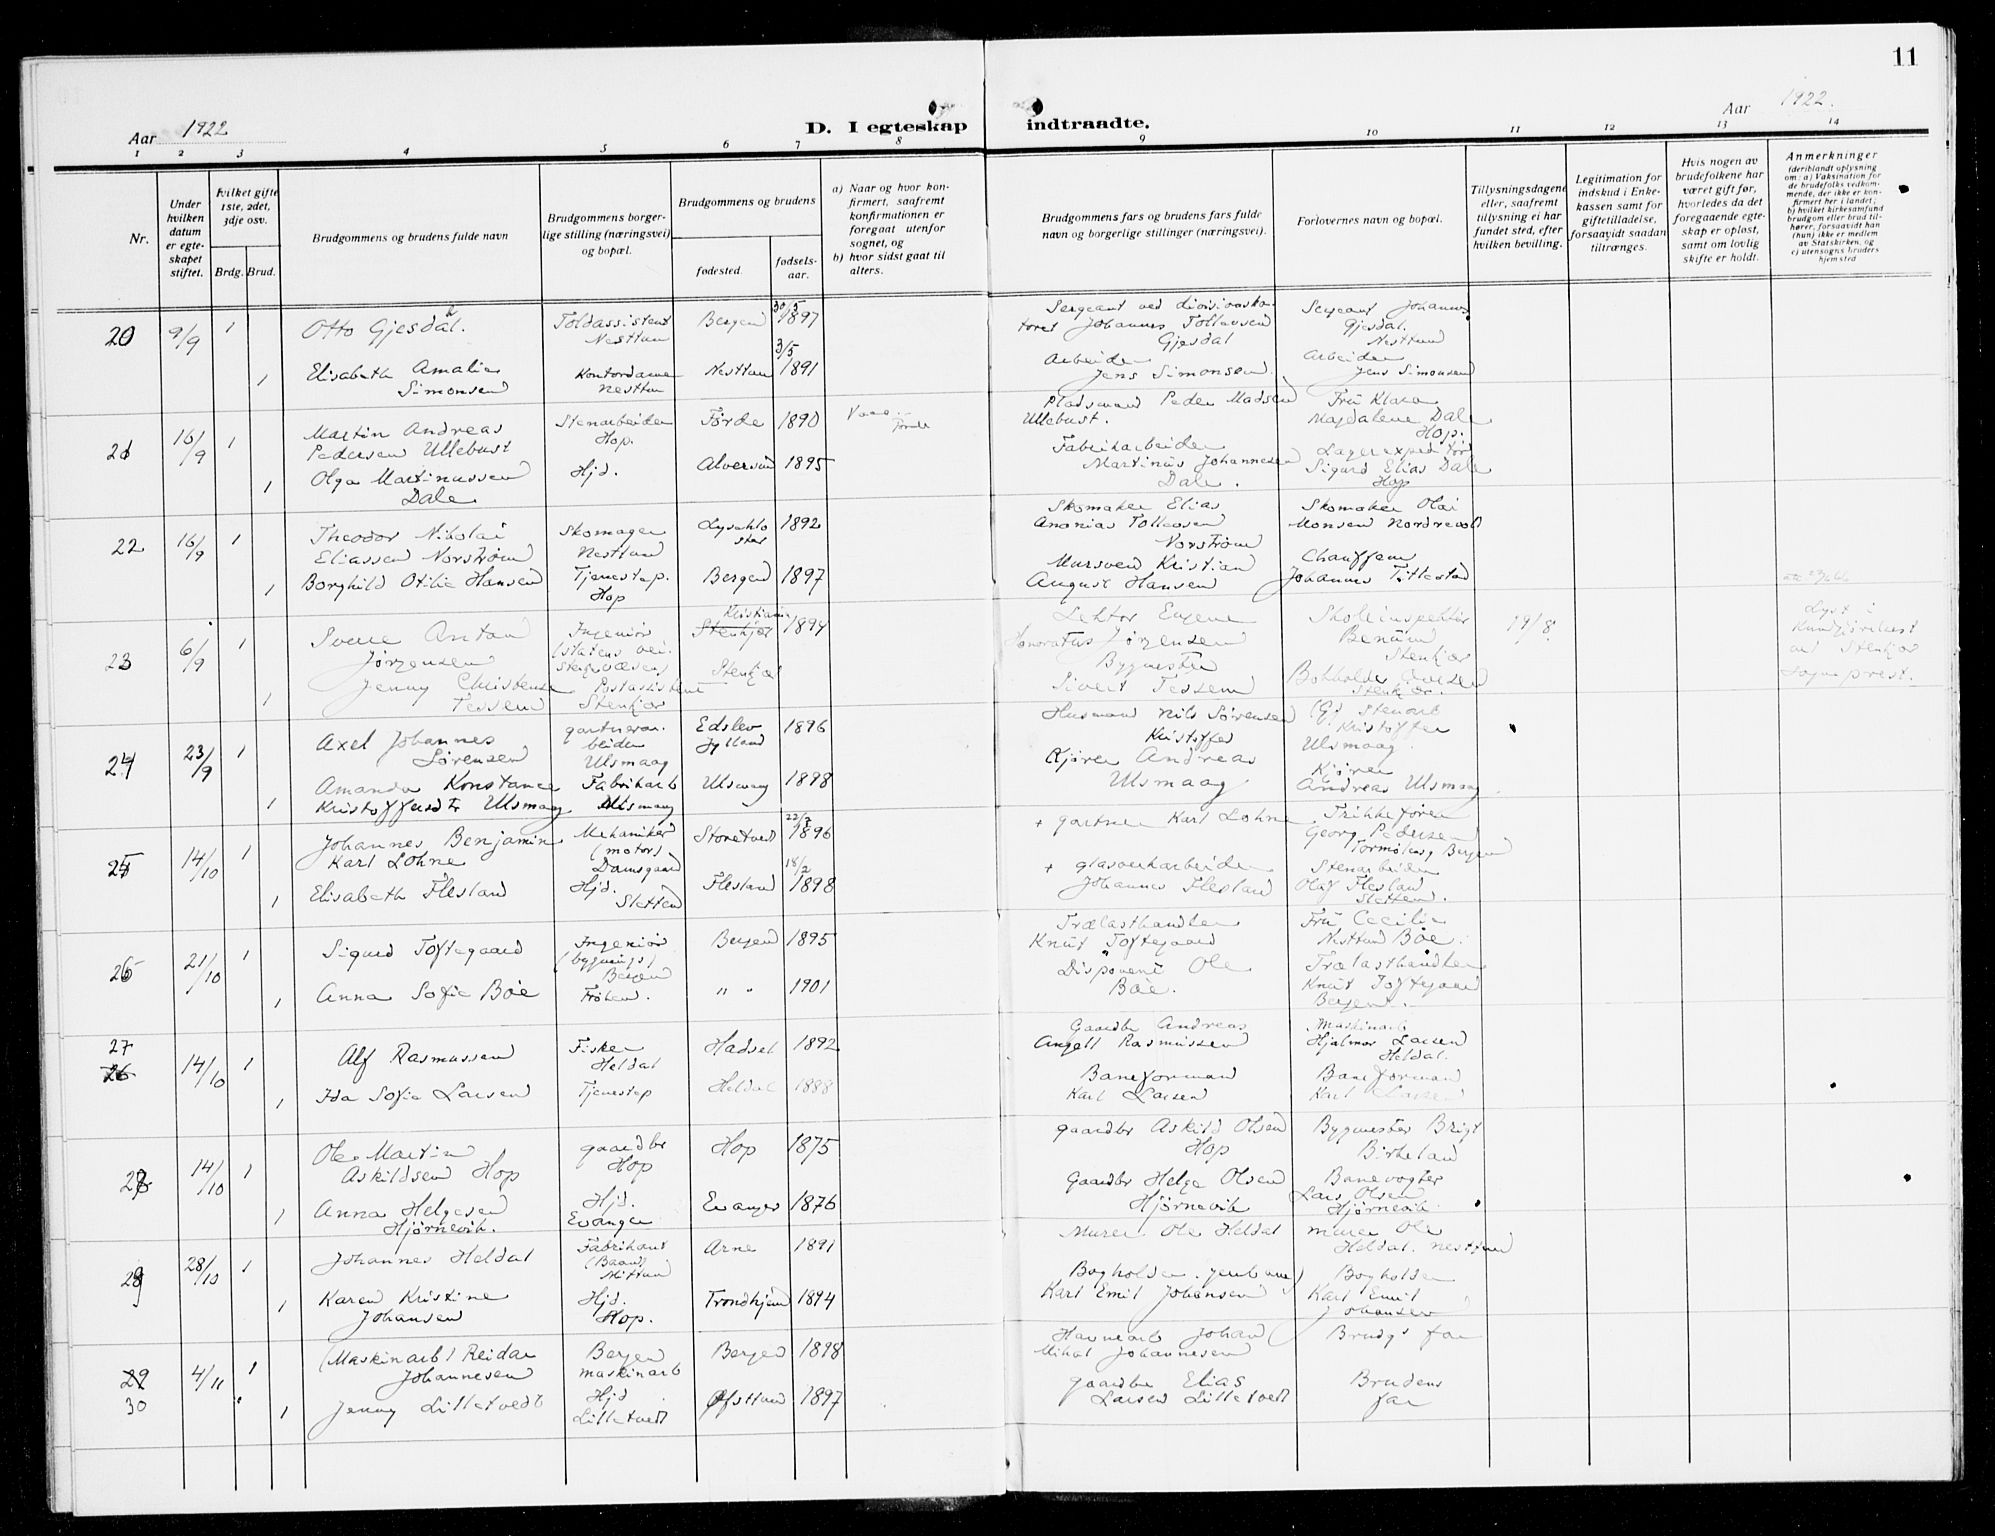 11
Aar 1922
D. I egteskap indtraadte.
Aar 1922.
1 2 3 4 5 6 7 8 9 10 11 12 13 14
Nr.
Under hvilken datum er egteskapet stiftet.
Hvilket gifte 1ste, 2det, 3dje osv.
Brdg. Brud.
Brudgommens og brudens fulde navn
Brudgommens borgerlige stilling (næringsvei) og bopæl.
Brudgommens og brudens
fødested.
fødselsaar.
a) Naar og hvor konfirmert, saafremt konfirmationen er foregaat utenfor sognet, og
b) hvor sidst gaat til alters.
Brudgommens fars og brudens fars fulde navn og borgerlige stillinger (næringsvei).
Forlovernes navn og bopæl.
Tillysningsdagene eller, saafremt tillysning ei har fundet sted, efter hvilken bevilling.
Legitimation for indskud i Enkekassen samt for giftetilladelse, forsaavidt saadan tiltrænges.
Hvis nogen av brudefolkene har været gift før, hvorledes da det foregaaende egteskap er opløst, samt om lovlig skifte er holdt.
Anmerkninger
(deriblandt oplysning om: a) Vaksination for de brudefolks vedkommende, der ikke er konfirmert her i landet; b) hvilket kirkesamfund brudgom eller brud tilhører, forsaavidt han (hun) ikke er medlem av Statskirken, og c) utensogns bruders hjemsted
20 9/9 1 Otto Gjesdal. Toldassistent Nesttun Bergen 30/5 1897 Sergeant ved divisionskontoret Johannes Tollevsen Gjesdal Sergeant Johannes Gjesdal. Nesttun
1 Elisabeth Amalie Simonsen Kontordame Nesttun Nesttun 3/5 1891 Arbeider Jens Simonsen. Arbeider Jens Simonsen
21 16/9 1 Martin Andreas Pedersen Ullebust Stenarbeider Hop. Førde 1890 Pladsmand Peder Madsen Ullebust. Fru Klara Magdalene Dale Hop.
1 Olga Martinussen Dale Hjd. Alversund 1895 Fabrikarbeider Martinus Johannesen Dale. Lagerexpeditør Sigurd Elias Dale Hop
22 16/9 1 Theodor Nikolai Eliassen Norstrøm Skomager Nesttun 1892 Skomaker Elias Ananias Tollevsen Norstrøm Skomaker Olai Monsen Nordrevoll
1 Borghild Otilie Hansen Tjenestep. Hop Bergen 1897 Mursvend Kristian August Hansen Chauffeur Johannes
23 6/9 1 Sverre Anton Jørgensen Ingeniør (statens vei Kristiania Stenkjær 1894 Lektor Eugene Honoratus Jørgensen Skoleinspektør Stenkjær 19/8. Lyst i
1 Jenny Christense Tessem Postassistent Stenkjær Stenkjær Bygmester Sivert Tessem Bokholder Stenkjær. Stenkjær sogneprest.
24 23/9 1 Axel Johannes Sørensen gartnerarbeider Ulsmaag Edslev Jylland 1896 Husmand Nils Sørensen Kristoffer Stenarb Kristoffer Ulsmaag.
1 Amanda Konstance Kristoffersdtr Ulsmaag Fabrikarb Ulsmaag Ulsmaag 1898 Kjører Andreas Ulsmaag Kjører Andreas Ulsmaag.
25 14/10 1 Johannes Benjamin Karl Lohne Mekaniker (motor) Damsgaard Storetvedt 22/7 1896 + gartner Karl Lohne Trikkefører Georg Pedersen Bergen
1 Elisabeth Flesland Hjd. Sletten Flesland 18/2 1898 + glasverkarbeider Johannes Flesland Stenarbeider Olaf Flesland Sletten.
26 21/10 1 Sigurd Toftegaard Ingeniør (bygnings) Bergen Bergen 1895 Trælasthandler Knut Toftegaard Fru Cecilie Bøe. Nesttun
1 Anna Sofie Bøe Frøken. " " 1901 Disponent Ole Bøe. Trælasthandler Knut Toftegaard Bergen.
27 26 14/10 1 Alf Rasmussen Fisker Heldal Hadsel 1892 Gaardbr Andreas Angell Rasmussen Maskinarb Hjalmar Larsen Heldal.
1 Ida Sofie Larsen Tjenestep Heldal 1888 Baneformand Karl Larsen Baneformand Karl Larsen
28 14/10 1 Ole Martin Askildsen Hop gaardbr Hop Hop 1875 gaardbr Askild Olsen Hop Bygmester Brigt Birkeland
1 Anna Helgesen Hjørnevik. Hjd. Evanger Evanger 1876 Gaardbr Helge Olsen Hjørnevik Banevogter Lars Olsen Hjørnevik.
29 28/10 1 Johannes Heldal Fabrikant (Baand) Nesttun Arne 1891 Murer Ole Heldal murer Ole Heldal. Nesttun
1 Karen Kristine Johansen Hjd. Hop. Trondhjem 1894 Bogholder (jernbane) Karl Emil Johansen Bogholder Karl Emil Johansen
29 30 4/11 1 (Maskinarb) Reidar Johannesen Bergen maskinarb Bergen 1898 Havnearb Johan Mikal Johannesen Brudgs far
1 Jenny Lilletvedt Hjd. Lilletvedt Øfsttun 1897 gaardbr Elias Larsen Lilletvedt Brudens far